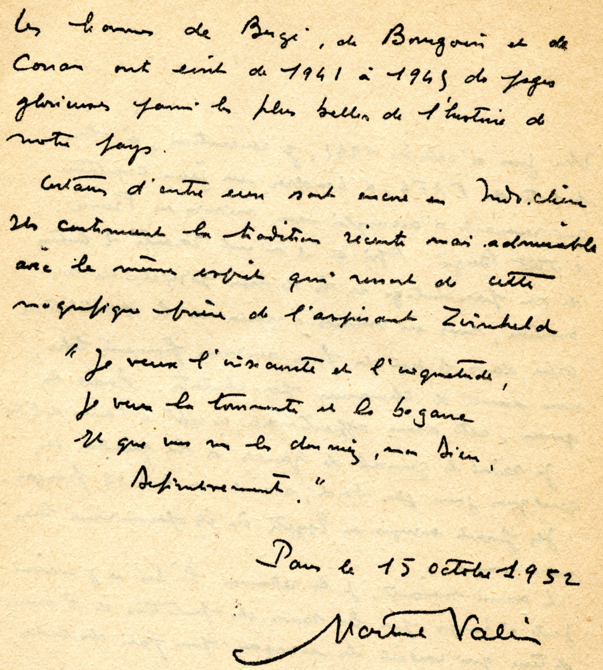 Les hommes de Bergé, de Bourgoin et de
Conan ont écrit de 1941 à 1945 des pages
glorieuses parmi les plus belles de l'histoire de
notre pays.
Certains d'entre eux sont encore en Indo.chine
Ils continuent la tradition récente mais admirable
avec le même esprit qui ressort de cette
magnifique prière de l'aspirant Zirnheld
"Je veux l'insécurité et l'inquiétude,
Je veux la tourmente et la bagarre
Et que vous me les donniez, mon Dieu,
Définitivement."
Paris le 15 octobre 1952
Martial Valin